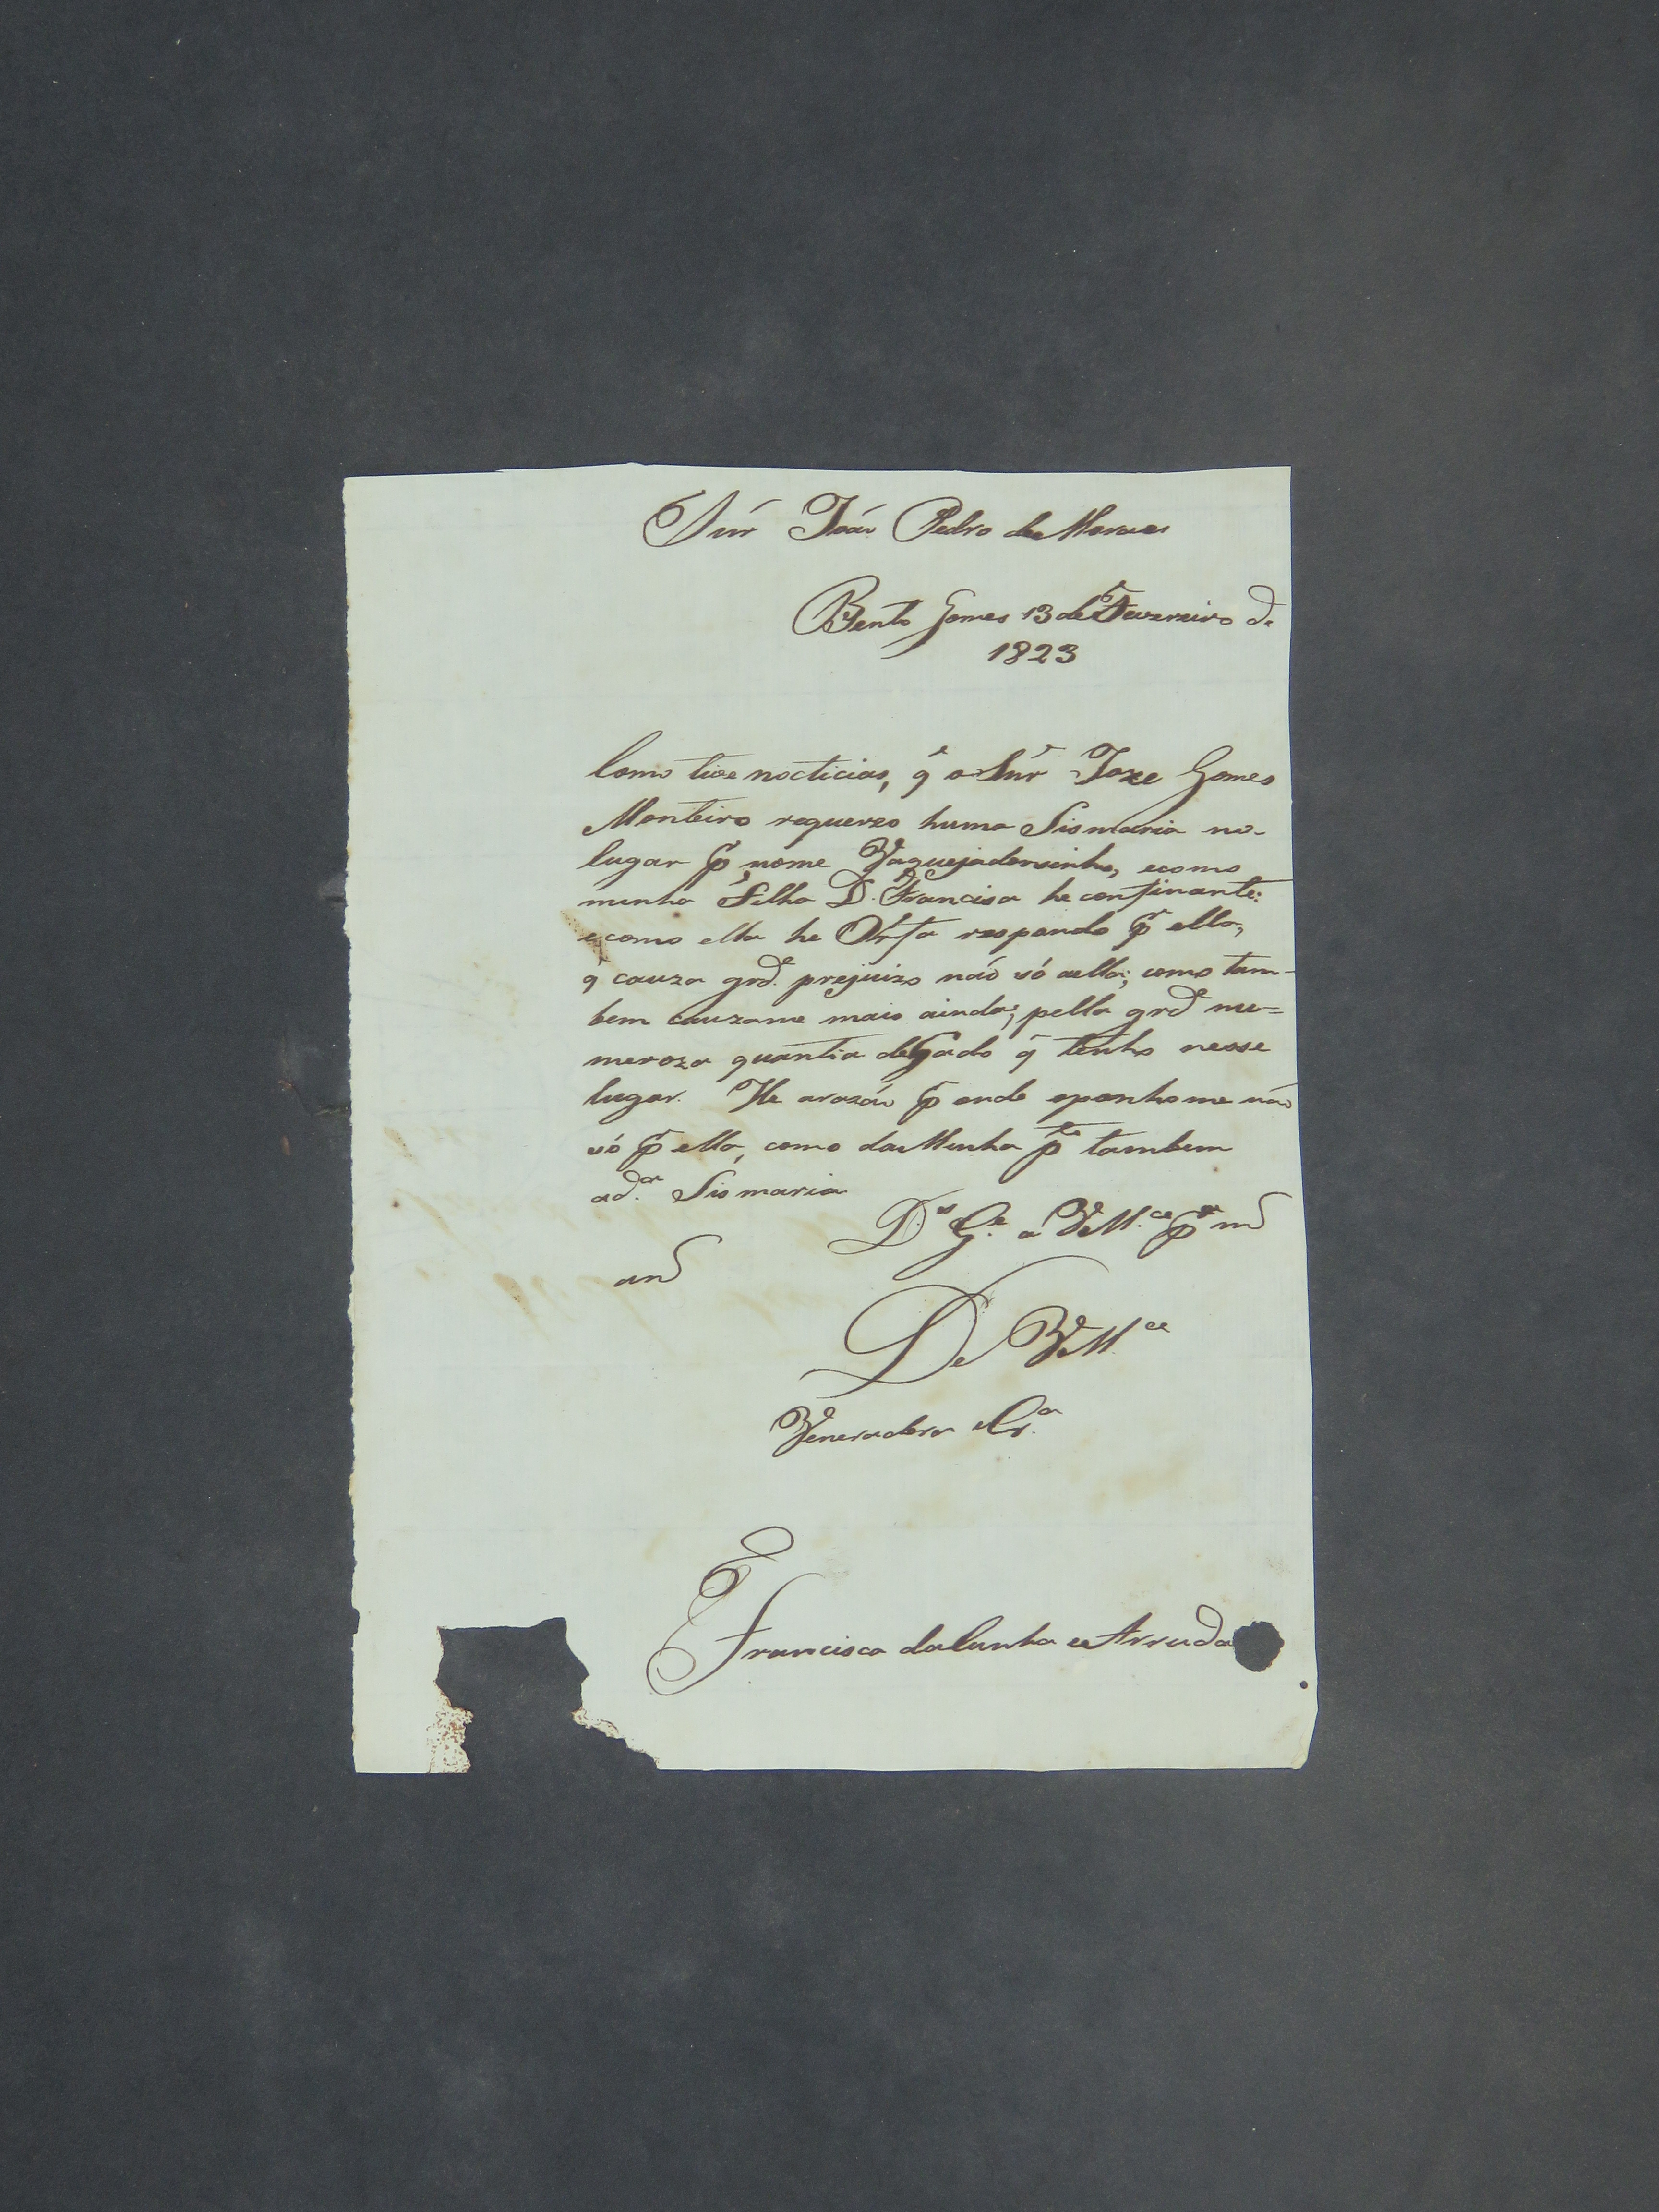 Snr̃ Joáo Pedro de Moraes
Bento Gomes 13 de Fevereiro de
1823
Como tive nocticias, q̃ o Snr̃ Joze Gomes
Monteiro requereo huma Sismaria no-
lugar p̃ nome Vaquejadorsinho, ecomo
minha Filha D. Francisca he confinante:
ecomo ella he Orfa respondo p̃ ella,
q̃ cauza grd.e prejuizo náo só aella; como tam-
bem cauzame mais ainda; pella grd.e nu=
meroza quantia deGado q̃ tenho nesse
lugar. He arazáo p̃ onde oponhome náo
só p̃ ella, como daMinha p.te tambem
ad.a Sismaria
D.s G.e a VM.ce p.r m.s
an.s
De VM.ce
Veneradora eCr.a
Francisca daCunha eArruda